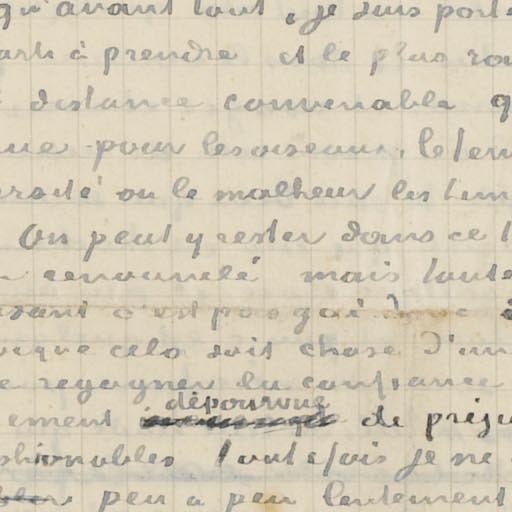 qu'avant tout, je suis port
à prendre et le plus
distance convenable q
pour les oiseaux, le
ou le malheur les
On peut y rester dans ce
renouvelé mais toute
c'est pas gai
que cela soit chose d'un
regagner la confiance
ement dépourvue de préju
toutefois je ne
peu a peu lentement